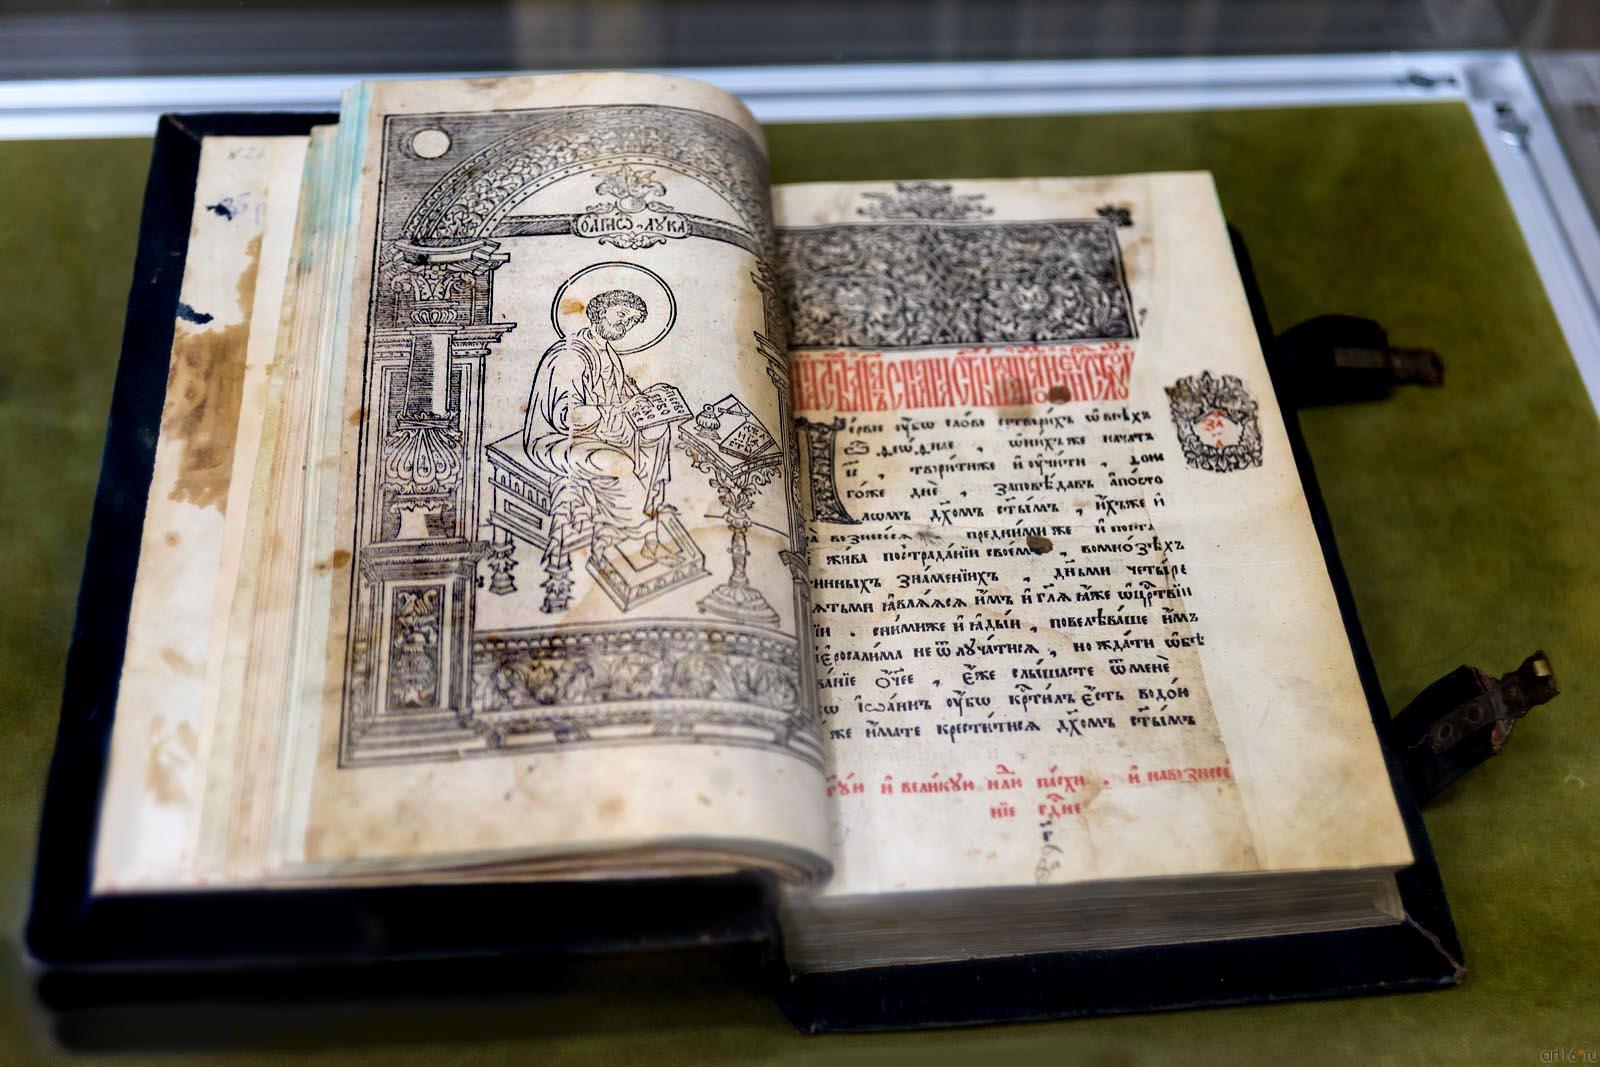 ОАГИѠС ЛУКА
первое
ѹбѡ
сло
во
ервое ѹ҆бѡ сло́во сотвори́хъ ѡ҆ всѣ́хъ
ѽ деѡ́филе , ѡ҆ ни́хже нача́тъ
і҆с҃ , твори́тиже и҆ ѹ҆чи́ти , дѡ не
го́же дн҃е , заповѣ́давъ а҆по́сто
лѡмъ дх҃омъ ст҃ы́мъ , и҆́хъже и҆
вознесесѧ преⷣ ни́ми же и҆ поста
жи́ва по страда́нїи свое́мъ , во мно́зѣхъ
и́нныхъ зна́менїихъ , дн҃ьми четы́ре
ѧтьми ꙗ҆влѧ́ѧсѧ и҆̀мъ и҆ гл҃ѧ ꙗ҆́же ѡ҆ црⷭ҇твїи
їи . сни́миже и҆ ꙗ҆ды́й , повелѣва́ше и҆̀мъ
і҆ерⷭ҇осали́ма не ѿлꙋча́тисѧ , но жда́ти ѡ҆бѣ
ва́нїе ѻ҆́чее , є҆́же слы́шасте ѿ менѐ
кѡ і҆ѡа́ннъ ѹ҆́бѡ крⷭ҇ти́лъ є҆́сть водо́ю
же и҆́мате крести́тисѧ дх҃омъ ст҃ы́мъ
тꙋ́ю и҆ вели́кꙋю нⷣлю па́схи , и҆ на вознесе́
нїе гдⷭ҇не
за
а
art16.ru